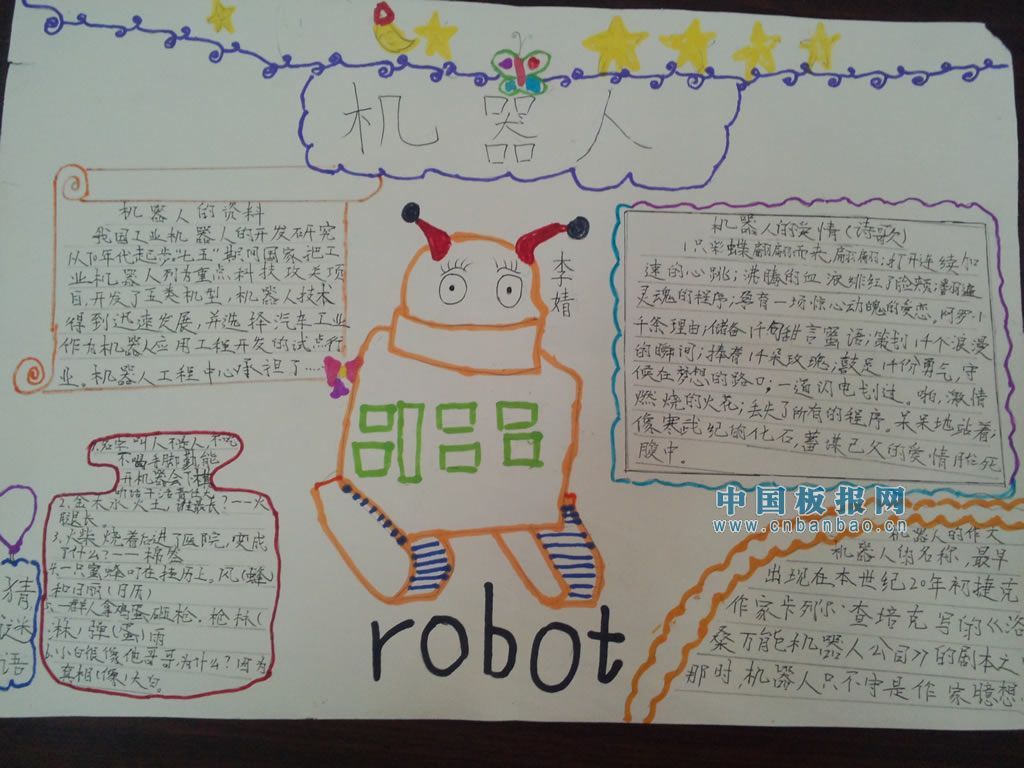 机器人
机器人的资料
我国工业机器人的开发研究
从70年代起步"七五"期间国家把工
业机器人列为重点科技攻关项
目,开发了五类机型,机器人技术
得到迅速发展,并选择汽车工业
作为机器人应用工程开发的试点行
业。机器人工程中心承担了……
李婧
机器人的爱情(诗歌)
1只彩蝶翩翩而来,翩翩;打开连续加
速的心跳;沸腾的血液绯红了脸颊
灵魂的程序;孕育一场惊心动魄的爱恋。阿罗·1
千条理由;储备1千句甜言蜜语;策划1千个浪漫
的瞬间;捧着1千朵玫瑰;鼓足1千份勇气,守
候在梦想的路口;一道闪电划过。啪,激情
燃烧的火花;丢失了所有的程序。呆呆地站着;
像寒武纪的化石,蓄谋已久的爱情胎死
腹中。
中国板报网
www.cnbanbao.cn
不喝手脚勤能
2.金木水火土,谁最长?——火
腿长。
3.火柴烧着后进了医院,变成
了什么?——棉签
4.一只蜜蜂叮在挂历上,风(蜂)
和日丽(日历)
5.一群人拿鸡蛋砸枪。枪林(
林)弹(蛋)雨
6.小白很像他哥哥,为什么?因为
真相(像)大白。
猜
谜
语
robot
机器人的作文
机器人的名称,最早
出现在本世纪20年初捷克
作家卡列尔·查培克写的《洛
桑万能机器人公司》的剧本
那时,机器人只不守是作家臆想